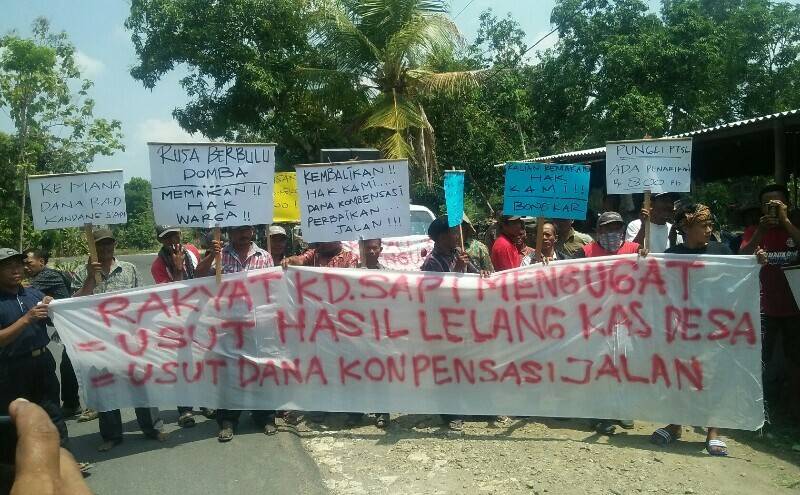 KE MANA
DANA PAD
KANDANG SAPI
RUSA BERBULU
DOMBA
MEMAKAN!!
HAK
WARGA!!
KEMBALIKAN!!
HAK KAMI....
DANA KOMBENSASI
PERBAIKAN
JALAN!!!
KALIAN KEMANAKAN
HAK
KAMI!!
BONGKAR
PUNGLI PTSL
ADA PENARIKAN
RAKYAT KD.SAPI MENGUGAT
= USUT HASIL LELANG KAS DESA
= USUT DANA KONPENSASI JALAN